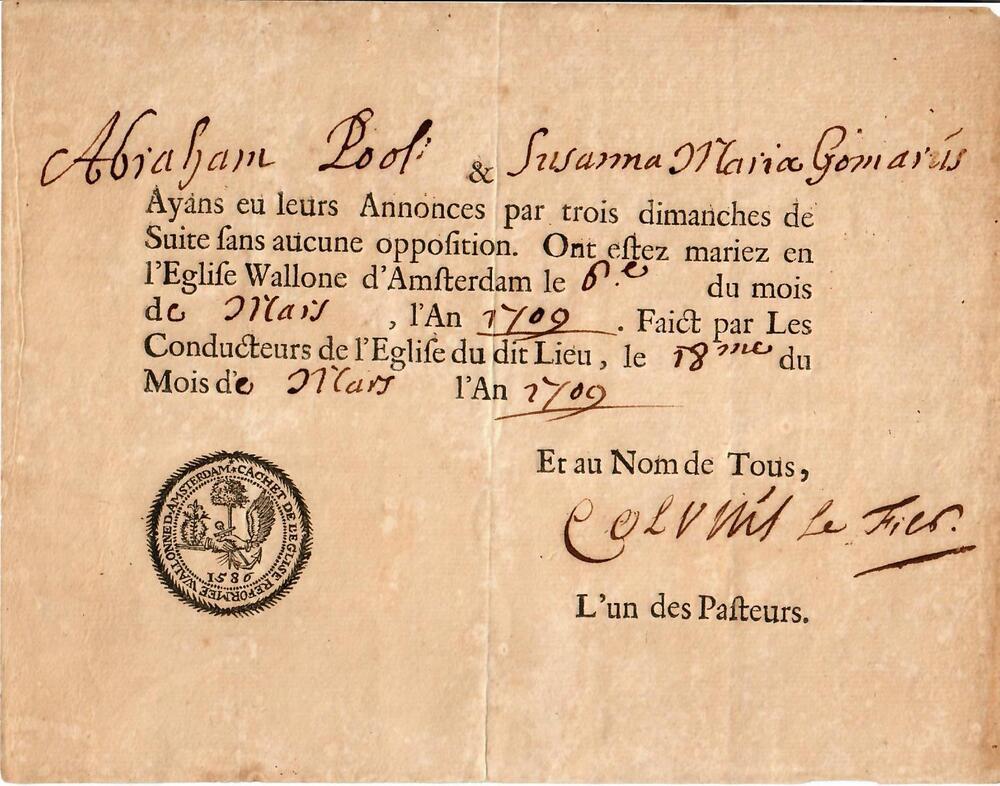 Abraham Pool. & Susanna Maria Gomarús
Ayans eu leurs Annonces par trois dimanches de
Suite ſans aucune oppoſition. Ont eſtez mariez en
l'Egliſe Wallone d'Amſterdam le 6.e du mois
de Mars , l'An 1709 . Faict par Les
Conducteurs de l'Egliſe du dit Lieu, le 18me du
Mois de Mars l'An 1709
Et au Nom de Tous,
Colvius le Fils.
L'un des Paſteurs.
CACHET DE L'EGLISE REFORMEE WALLONNE D'AMSTERDAM
1586